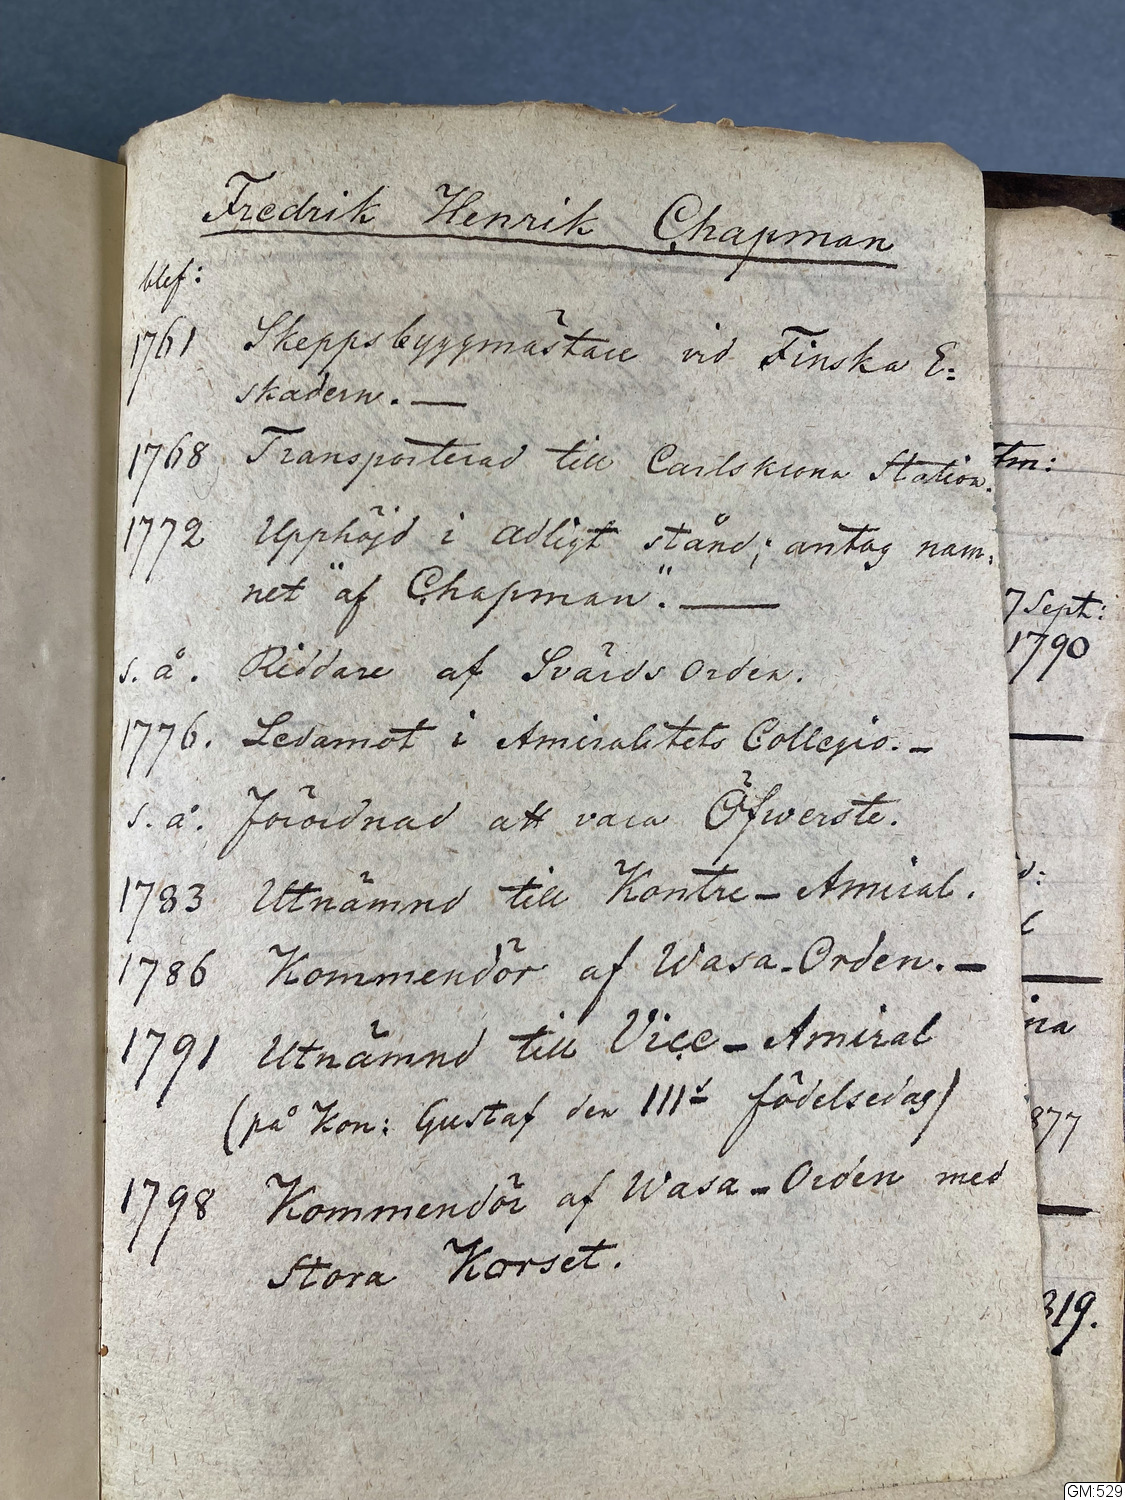 Fredrik Henrik Chapman
blef:
1761 Skeppsbyggmästare vid Finska E:
skadern. —
1768 Transporterad till Carlskrona Station.
1772 Upphöjd i adligt stånd; antog nam:
net "af Chapman". —
s. å. Riddare af Svärds Orden.
1776. Ledamot i Amiralitets Collegio. –
s. å. Förordnad att vara Öfwerste.
1783 Utnämnd till Kontre-Amiral.
1786 Kommendör af Wasa-Orden. –
1791 Utnämnd till Vice-Amiral
(på Kon: Gustaf den IIIs födelsedag)
1798 Kommendör af Wasa-Orden med
Stora Korset.
tm:
7 Sept:
1790
na
877
319.
GM:529